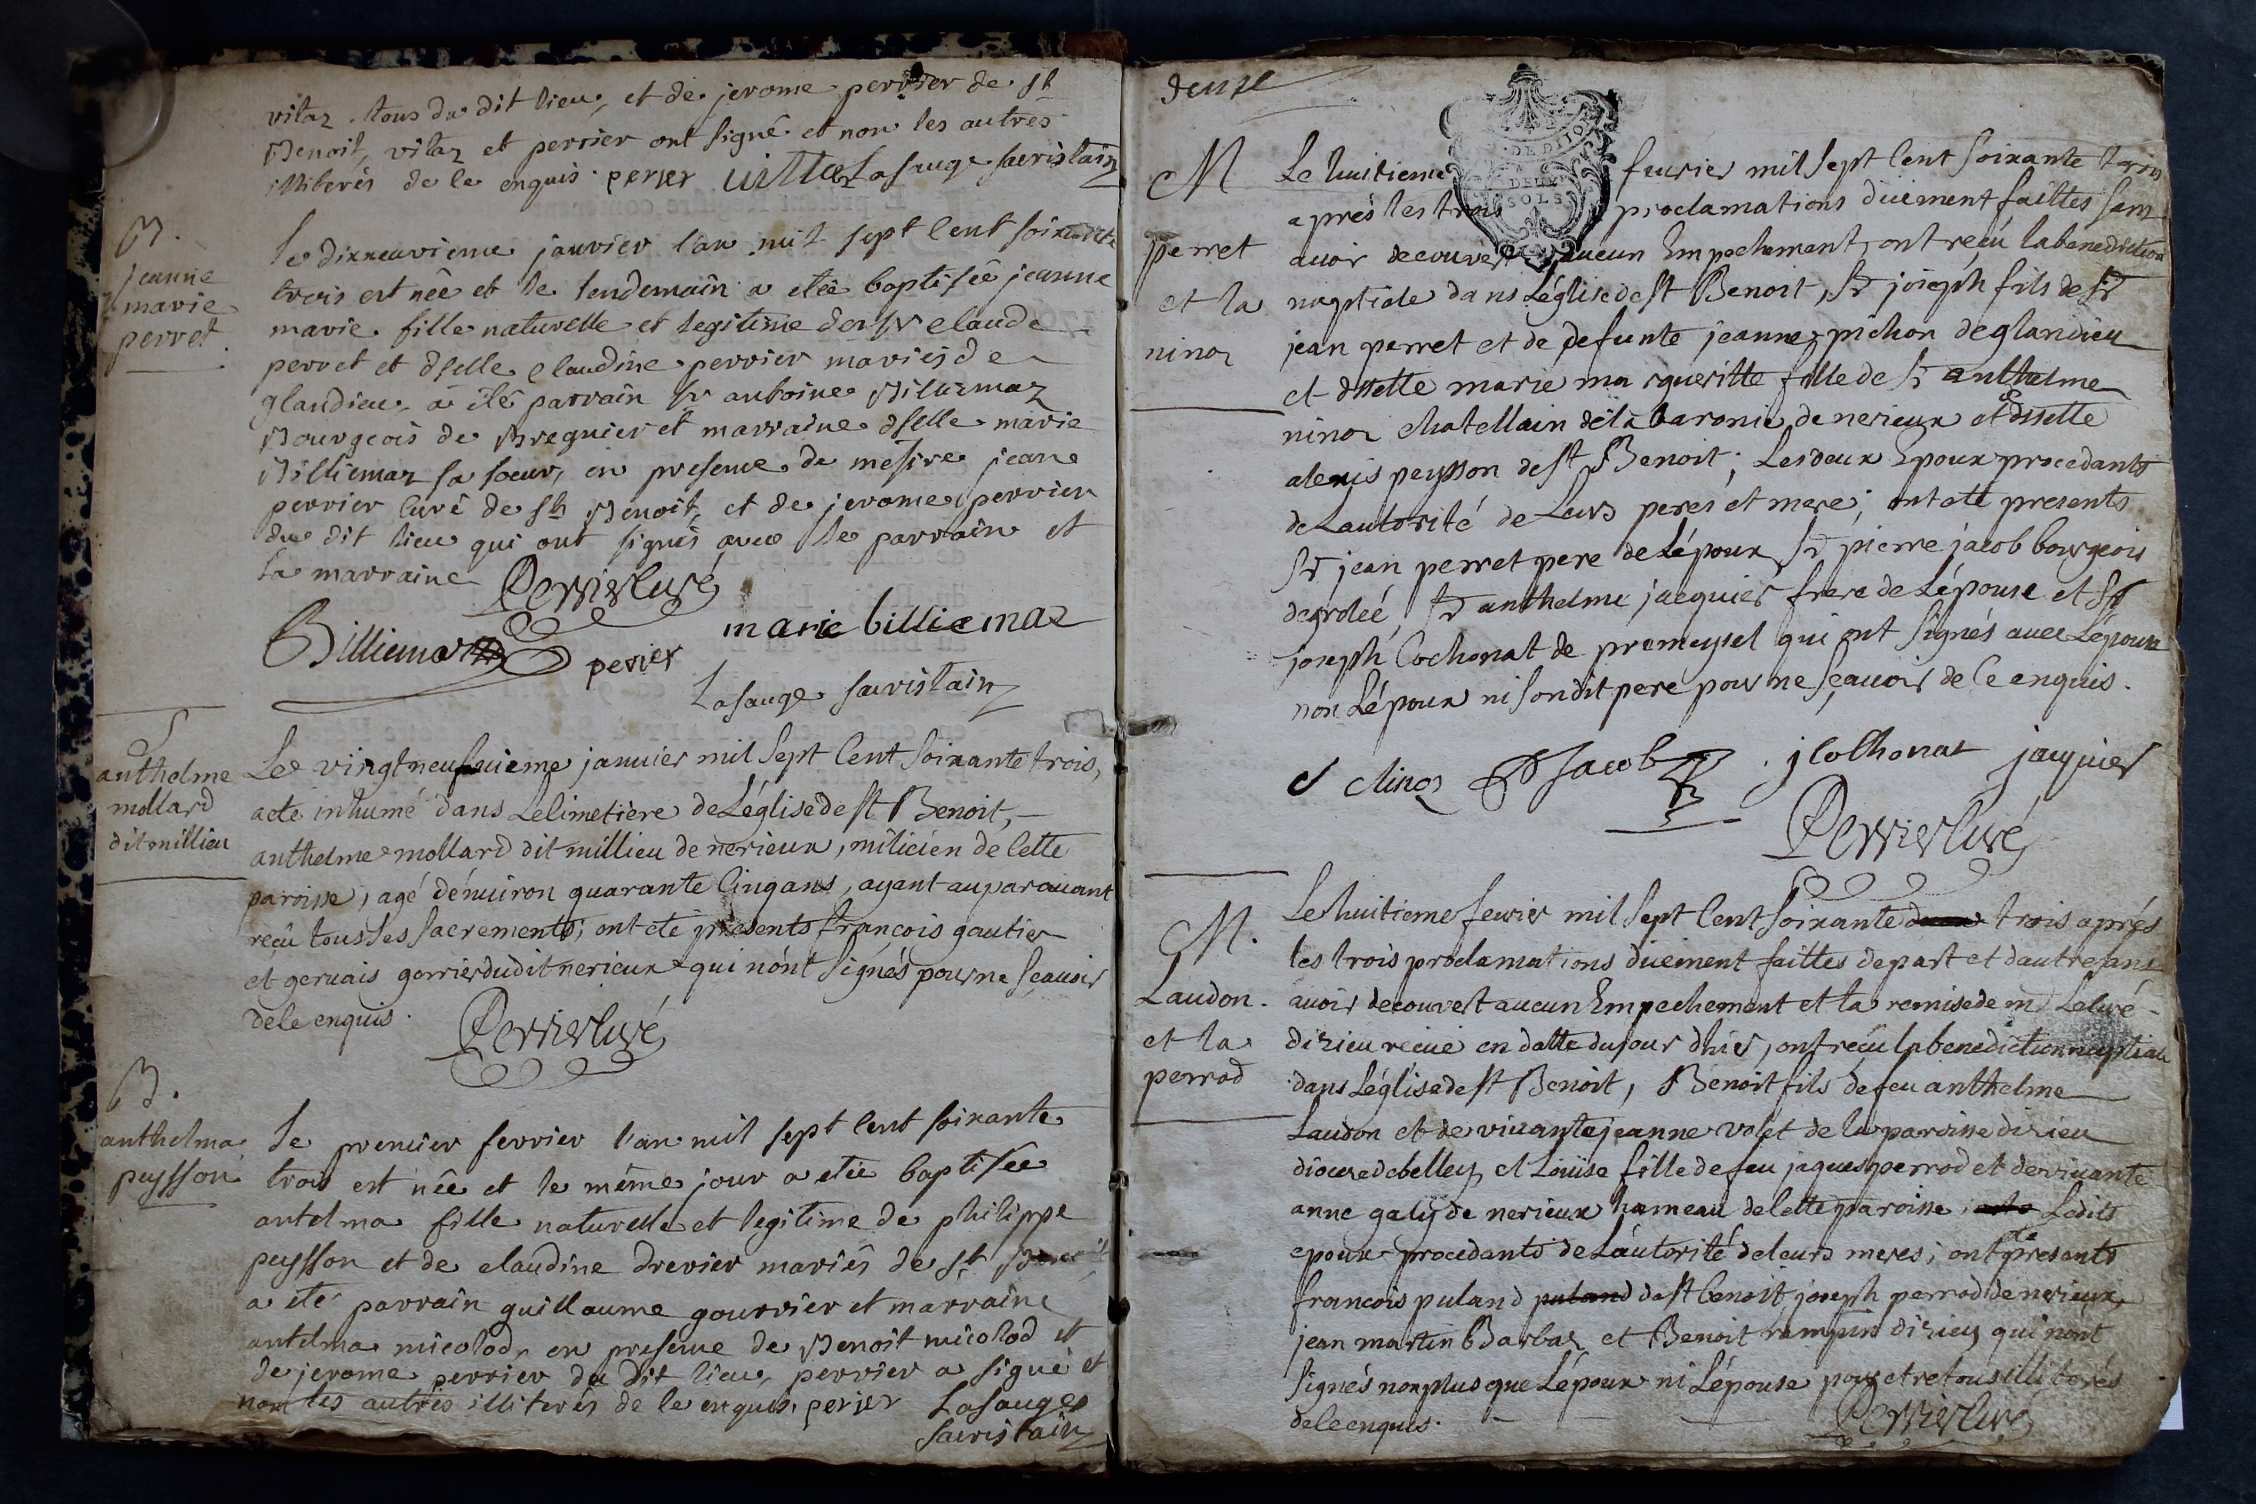 vitaz. tous du dit lieu, et de jerome perrier de st
Benoit, vitaz et perrier ont signé et non les autres
illiterés de ce enquis. perier Lasauge sacristain
B.
jeanne
marie
perret
le dixneuvieme janvier l'an mil sept cent soixante
trois est née et le lendemain a etée baptisée jeanne
marie fille naturelle et legitime de sr claude
perret et dselle claudine perrier mariés de
glandieu, a été parrain sr antoine Billiemaz
Bourgeois de Bregnier et marraine dselle marie
Billiemaz sa soeur, en presence de messire jean
perrier curé de st Benoit, et de jerome perrier
du dit lieu qui ont signés avec le parrain et
la marraine Perrier curé
Billiemaz perier marie billiemaz
Lasauge sacristain
S
anthelme
mollard
dit millieu
Le vingtneufvieme janvier mil sept cent soixante trois,
a eté inhumé dans le cimetiere de L'église de st Benoit,
anthelme mollard dit millieu de nerieux, milicien de cette
paroisse, agé d'énviron quarante cinq ans, ayant auparavant
reçû tous les sacrements; ont eté presents françois gautier
et gervais gorrier dudit nerieux qui n'ont signés pour ne sçavoir
de ce enquis. Perrier curé
B.
anthelma
peysson
le premier fevrier l'an mil sept cent soixante
trois est née et le même jour a etée baptisée
antelma fille naturelle et legitime de philippe
peysson et de claudine drevier mariés de st Benoit
a eté parrain guillaume gourrier et marraine
antelma micolod, en presence de Benoit micolod et
de jerome perrier du dit lieu, perrier a signé et
non les autres illiterés de ce enquis. perier Lasauge
sacristain
deuxe
DE DIJON
DEUX
SOLS
M
perret
et la
ninoz
Le huitieme fevrier mil sept cent soixante trois
aprés les trois proclamations duement faittes sans
avoir decouvert aucun Empechement, ont reçû la benediction
nuptiale dans L'église de st Benoit, sr joseph fils de sr
jean perret et de defunte jeanne pichon de glandieu
et dselle marie margueritte fille de sr anthelme
ninoz chatellain de la baronie de nerieux et dselle
alexis peysson de st Benoit; Les deux Epoux procedants
de L'autorité de Leurs peres et mere; ont eté presents
sr jean perret pere de L'époux, sr pierre jacob bourgeois
de grolée, sr anthelme jacquier frere de L'épouse et sr
joseph Cochonat de premeysel qui ont signés avec L'épouse
non L'époux ni son dit pere pour ne sçavoir de Ce enquis.
Ninoz Jacob j Cochonat jacquier
Perrier curé
M.
Laudon
et la
perrod
Le huitieme fevrier mil sept cent soixante trois aprés
les trois proclamations duement faittes de part et dautre sans
avoir decouvert aucun Empechement et la remise de m Le curé
dizieu reçue en datte du jour dhier, ont reçû la benediction nuptiale
dans L'église de st Benoit, Benoit fils de feu anthelme
Laudon et de vivante jeanne volet de la paroisse dizieu
diocese de belley, et Loüise fille de feu jaques perrod et de vivante
anne galy de nerieux hameau de cette paroisse, Ledits
epoux procedants de L'autorité de leurs meres; ont eté presants
francois puland de st benoit, joseph perrod de nerieux,
jean martin Barbaz, et Benoit rampin dizieu, qui n'ont
signés non plus que L'époux ni L'épouse pour etre tous illiterés
de ce enquis. Perrier curé